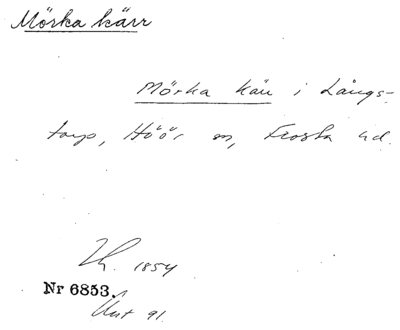 Mörka kärr
Mörka kärr i Långs-
torp, Höör sn, Frosta hd.
1854
Nr 6853.
91